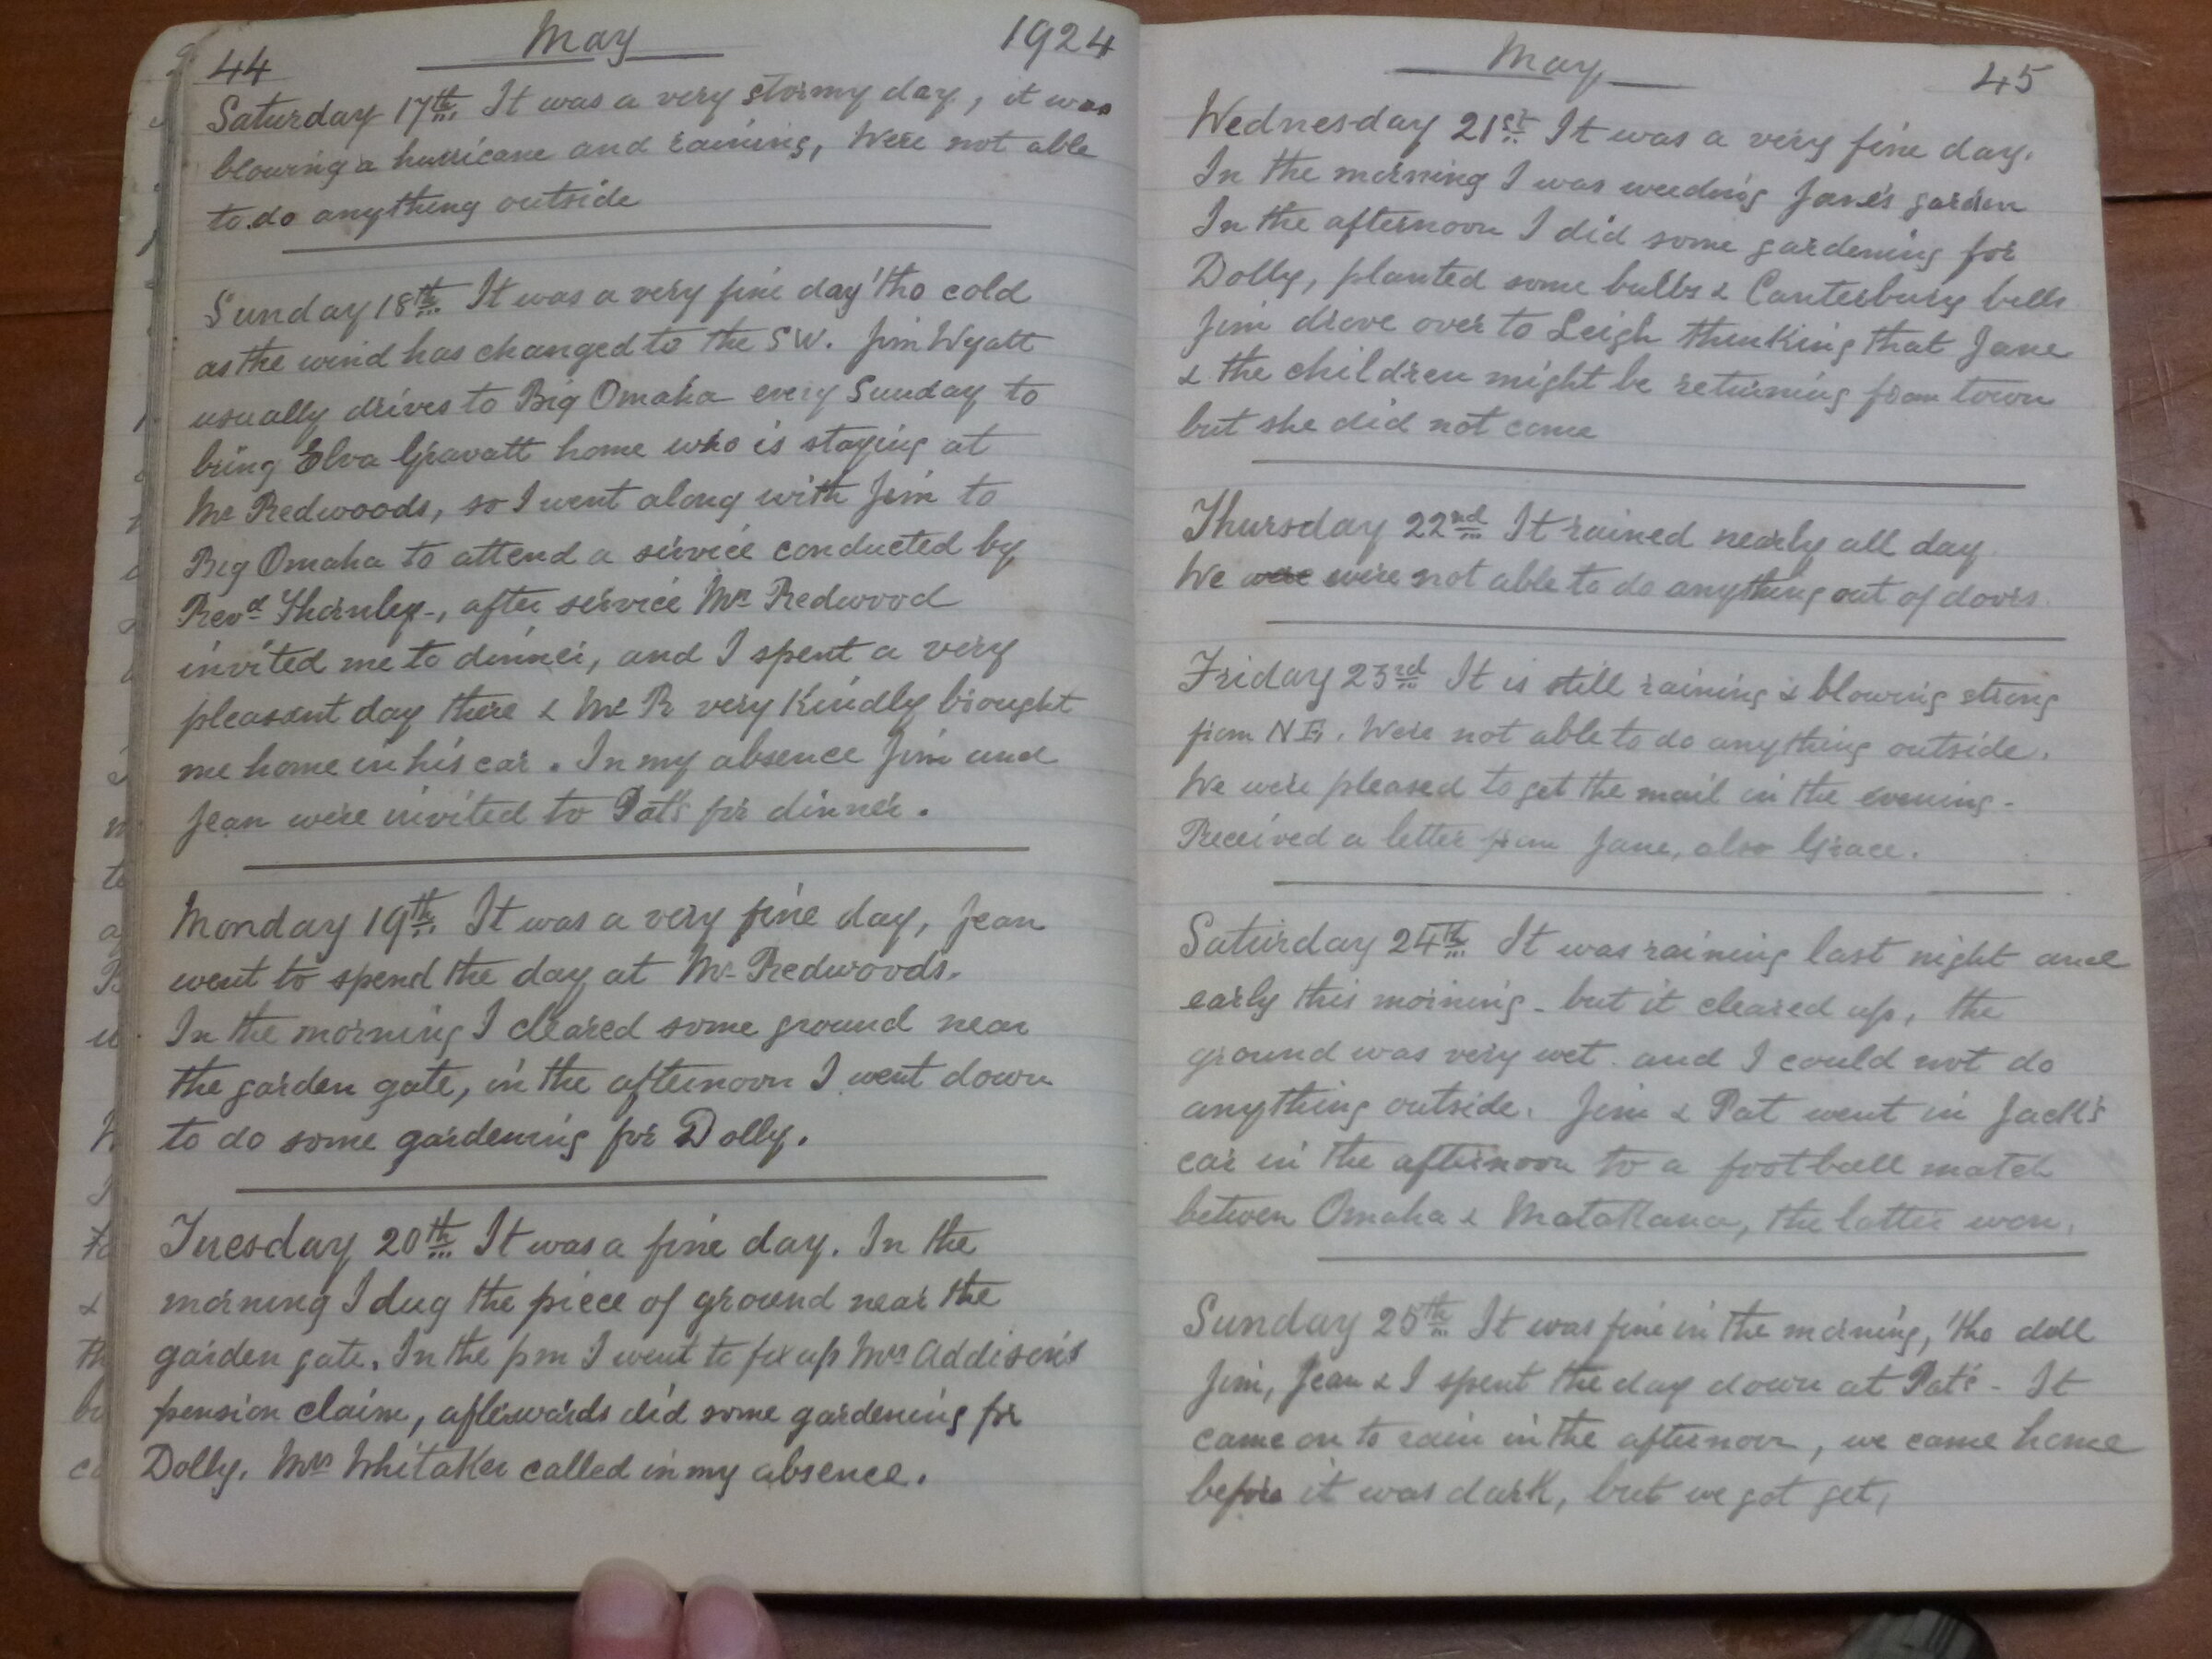 44 May 1924
Saturday 17th It was a very stormy day, it was
blowing a hurricane and raining, Were not able
to do anything outside
Sunday 18th It was a very fine day 'tho cold
as the wind has changed to the SW. Jim Wyatt
usually drives to Big Omaha every Sunday to
bring Elva Gravatt home who is staying at
Mr Redwoods, so I went along with Jim to
Big Omaha to attend a service conducted by
Revd Thornley-, after service Mr Redwood
invited me to dinner, and I spent a very
pleasant day there & Mr R very kindly brought
me home in his car. In my absence Jim and
Jean were invited to Pat's for dinner.
Monday 19th It was a very fine day, Jean
went to spend the day at Mr Redwoods.
In the morning I cleared some ground near
the garden gate, in the afternoon I went down
to do some gardening for Dolly.
Tuesday 20th It was a fine day. In the
morning I dug the piece of ground near the
garden gate. In the pm I went to fix up Mrs Addison's
pension claim, afterwards did some gardening for
Dolly. Mrs Whitaker called in my absence.
May 45
Wednesday 21st It was a very fine day.
In the morning I was weeding Jane's garden
In the afternoon I did some gardening for
Dolly, planted some bulbs & Canterbury bells
Jim drove over to Leigh thinking that Jane
& the children might be returning from town
but she did not come
Thursday 22nd It rained nearly all day.
We were were not able to do anything out of doors.
Friday 23rd It is still raining & blowing strong
from NE. Were not able to do anything outside.
We were pleased to get the mail in the evening-
Received a letter from Jane, also Grace.
Saturday 24th It was raining last night and
early this morning - but it cleared up, the
ground was very wet. and I could not do
anything outside. Jim & Pat went in Jack's
car in the afternoon to a football match
betwen Omaha & Matakana, the latter won.
Sunday 25th It was fine in the morning, 'tho dull
Jim, Jean & I spent the day down at Pat's - It
came on to rain in the afternoon, we came home
before it was dark, but we got get,